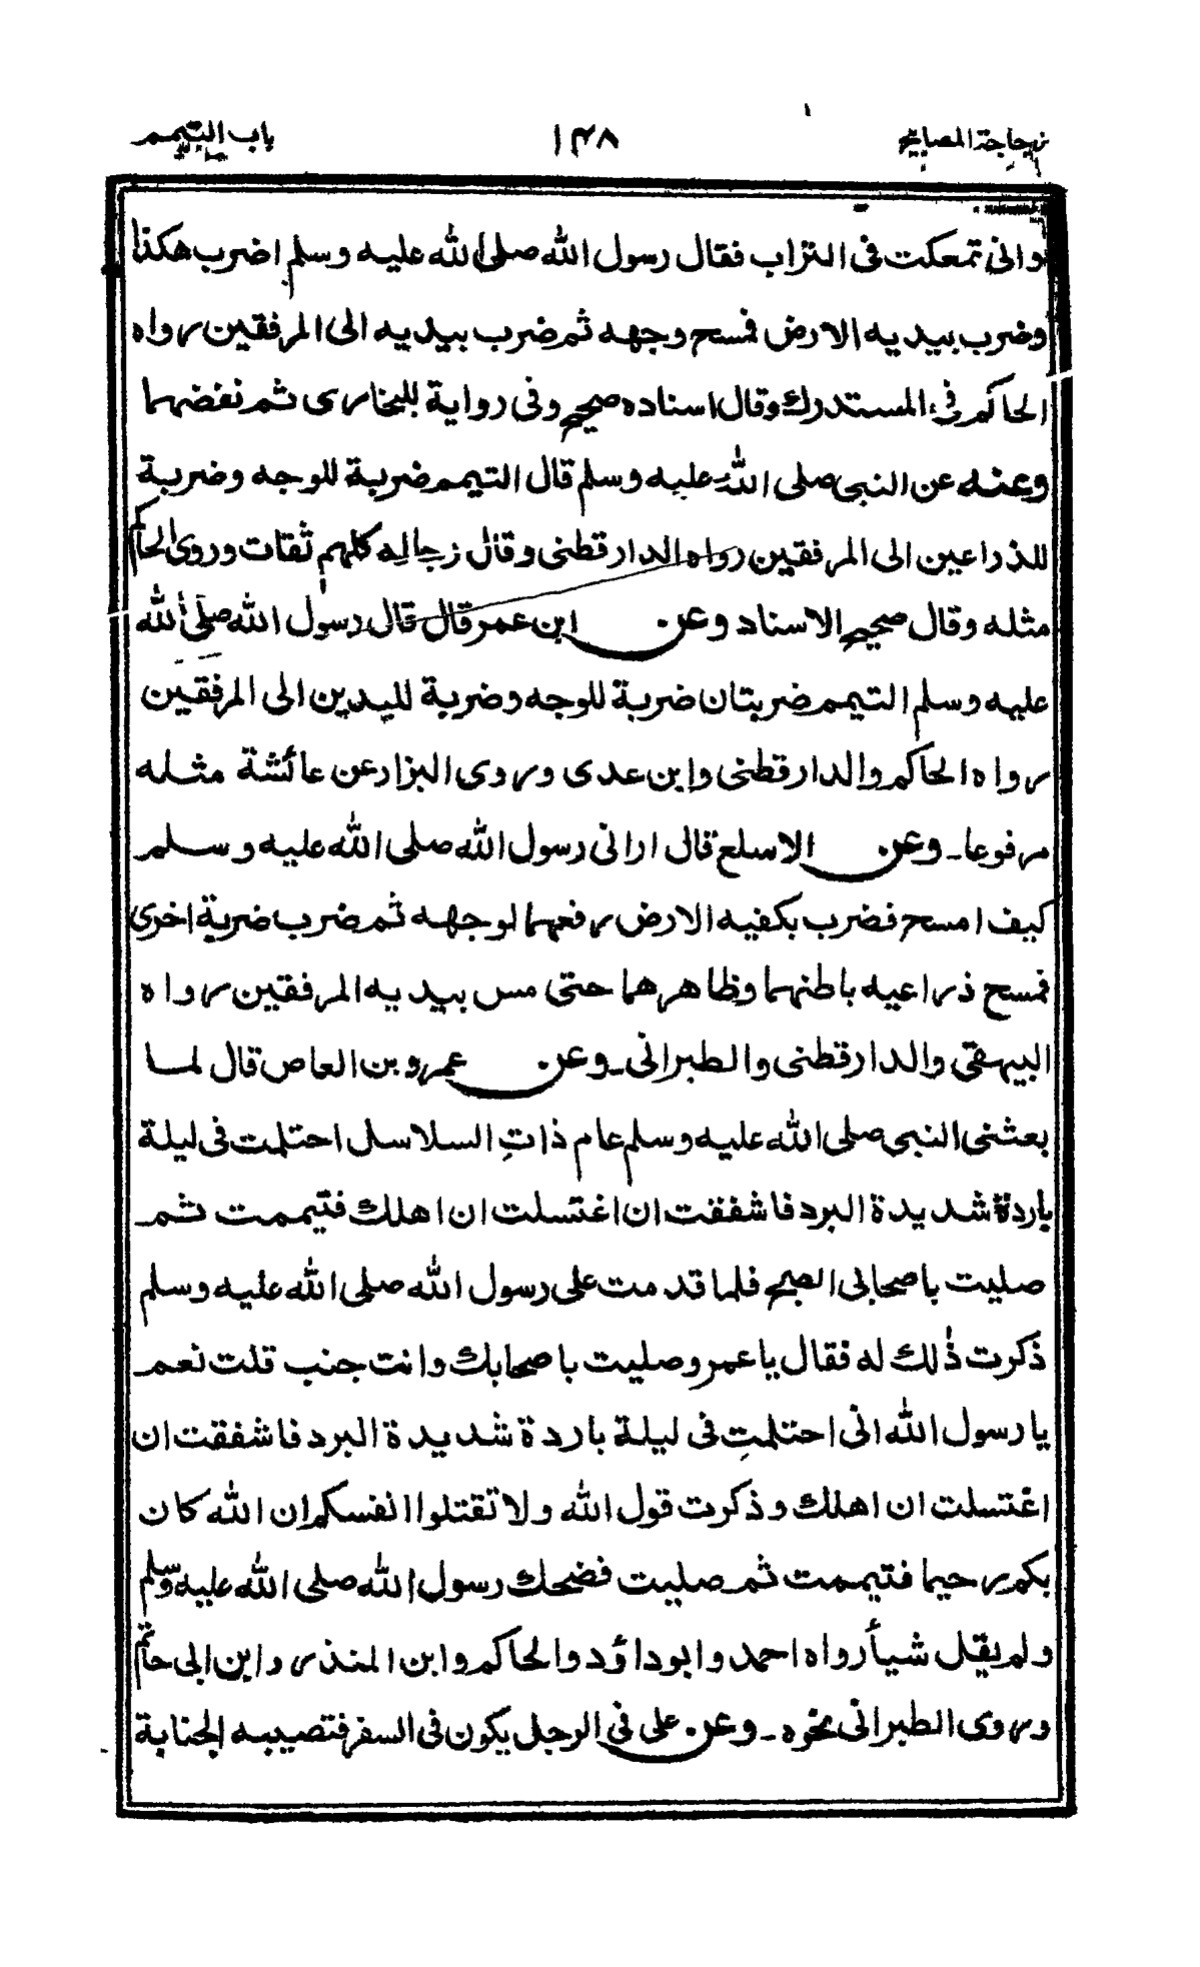 زجاجة المصابيح ١٤٨ باب التيمم
وانى تمعكت فى التراب فقال رسول الله صلى الله عليه وسلم اضرب هكذا
وضرب بيديه الارض فمسح وجهه ثم ضرب بيديه الى المرفقين رواه
الحاكم فى المستدرك وقال اسناده صحيح وفى رواية للبخارى ثم نفضهما
وعنه عن النبى صلى الله عليه وسلم قال التيمم ضربة للوجه وضربة
للذراعين الى المرفقين رواه الدارقطنى وقال رجاله كلهم ثقات وروى الحاكم
مثله وقال صحيح الاسناد وعن ابن عمر قال قال رسول الله صلى الله
عليه وسلم التيمم ضربتان ضربة للوجه وضربة لليدين الى المرفقين
رواه الحاكم والدارقطنى وابن عدى وروى البزار عن عائشة مثله
مرفوعا۔ وعن الاسلع قال ارانى رسول الله صلى الله عليه وسلم
كيف امسح فضرب بكفيه الارض رفعهما لوجهه ثم ضرب ضربة اخرى
فمسح ذراعيه باطنهما وظاهرهما حتى مس بيديه المرفقين رواه
البيهقى والدارقطنى والطبرانى۔ وعن عمرو بن العاص قال لما
بعثنى النبى صلى الله عليه وسلم عام ذاتِ السلاسل احتلمت فى ليلة
باردة شديدة البرد فاشفقت ان اغتسلت ان اهلك فتيممت ثم
صليت باصحابى الصبح فلما قدمت على رسول الله صلى الله عليه وسلم
ذكرت ذٰلك له فقال يا عمرو صليت باصحابك وانت جنب قلت نعم
يا رسول الله انى احتلمتِ فى ليلة باردة شديدة البرد فاشفقت ان
اغتسلت ان اهلك وذكرت قول الله ولا تقتلوا انفسكم ان الله كان
بكم رحيما فتيممت ثم صليت فضحك رسول الله صلى الله عليه وسلم
ولم يقل شيأ رواه احمد وابوداؤد والحاكم وابن المنذر وابن ابى حاتم
وروى الطبرانى نحوه۔ وعن على فى الرجل يكون فى السفر فتصيبه الجنابة